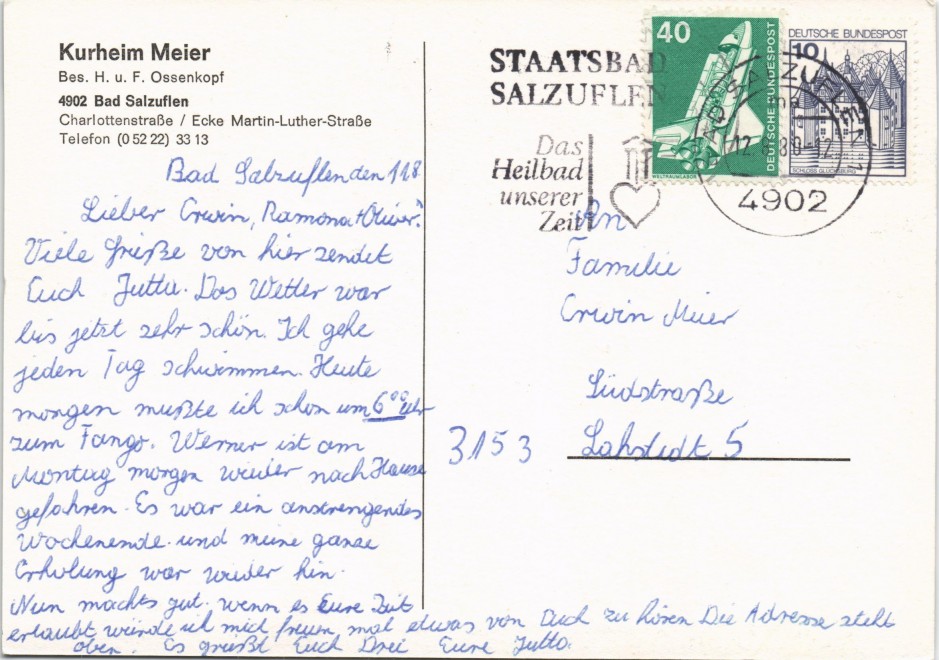 Kurheim Meier
Bes. H. u. F. Ossenkopf
4902 Bad Salzuflen
Charlottenstraße / Ecke Martin-Luther-Straße
Telefon (0 52 22) 33 13
Bad Salzuflen den 11.8.
Lieber Erwin, Ramona + Oliver!
Viele Grüße von hier sendet
Euch Jutta. Das Wetter war
bis jetzt sehr schön. Ich gehe
jeden Tag schwimmen. Heute
morgen mußte ich schon um 6°° Uhr
zum Fango. Werner ist am
Montag morgen wieder nach Hause
gefahren. Es war ein anstrengendes
Wochenende und meine ganze
Erholung war wieder hin.
Nun machts gut. wenn es Eure Zeit
erlaubt würde ich mich freuen mal etwas von Euch zu hören Die Adresse steht
oben. Es grüßt Euch Drei Eure Jutta.
STAATSBAD
SALZUFLEN
Das
Heilbad
unserer
Zeit
40
DEUTSCHE BUNDESPOST
WELTRAUMLABOR
DEUTSCHE BUNDESPOST
10
SCHLOSS GLÜCKSBURG
4902
An
Familie
Erwin Meier
Südstraße
3153 Lahstedt 5